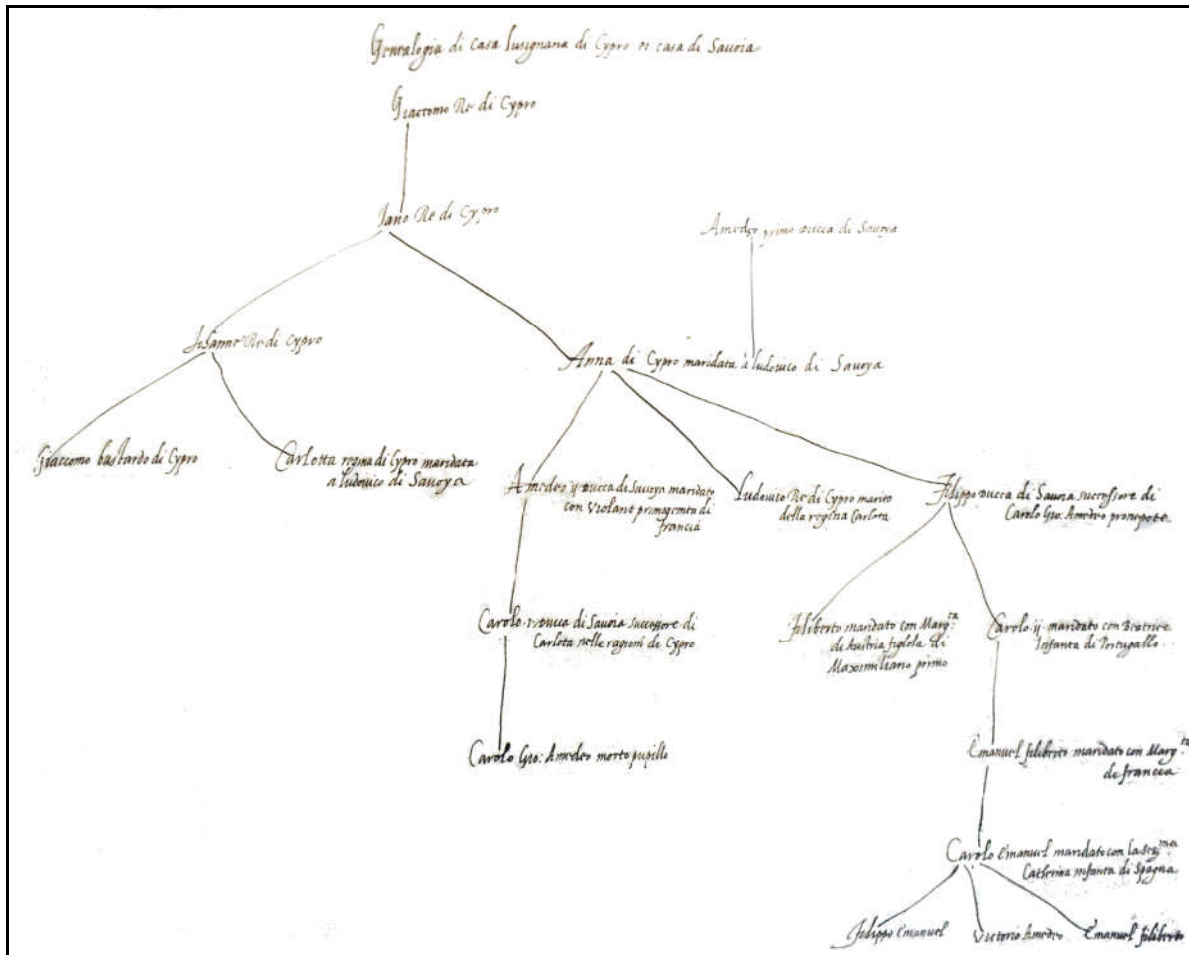 Genealogia di casa lusignana di Cypro et casa di Savoia
Giacomo Re di Cypro
Iano Re di Cypro
Amedeo primo Ducca di Savoya
Iohanne Re di Cypro
Anna di Cypro maridata à ludovico di Savoya
Giaccomo bastardo di Cypro
Carlotta regina di Cypro maridata
a ludovico di Savoya
Amedeo ij Ducca di Savoya maridato
con Violant primogenita di
francia
Ludovico Re di Cypro marito
della regina Carlota
Filippo Ducca di Savoia successore di
Carolo Gio: Amedeo pronepote
Carolo Ducca di Savoia successore di
Carlota nelle ragioni di Cypro
Filiberto maridato con Marg.ta
di Austria figlola di
Maximiliano primo
Carolo ij maridato con Beatrice
Infanta di Portugallo
Carolo Gio: Amedeo morto pupillo
Emanuel filiberto maridato con Marg.ta
de francia
Carolo Emanuel maridato con la Ser.ma
Catherina infanta di Spagna
Filippo Emanuel
Victorio Amedeo
Emanuel filiberto